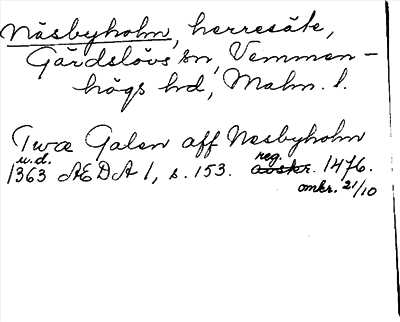 Näsbyholm, herresäte,
Gärdslövs sn, Vemmen-
högs hd, Malm. l.
Twæ Galen aff Nesbyholm
u.d. reg.
1363 AEDA 1, s. 153. avskr. 1476.
omkr. 21/10